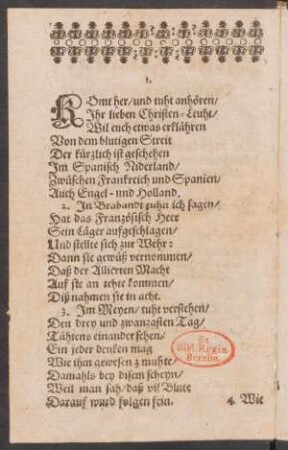 1.
KOmt her/ und tuht anhören/
Ihr lieben Christen-Leuht/
Wil euch etwas erklähren
Von dem blutigen Streit
Der kürtzlich ist geschehen
Im Spanisch Niderland/
Zwüschen Franckreich und Spanien/
Auch Engel- und Holland.
2. In Brabandt tuhn ich sagen/
Hat das Französisch Heer
Sein Läger aufgeschlagen/
Und stellte sich zur Wehr:
Dann sie gewüß vernommen/
Daß der Allierten Macht
Auf sie an tehte kommen/
Diß nahmen sie in acht.
3. Im Meyen/ tuht verstehen/
Den drey und zwanzigsten Tag/
Tähten s einander sehen/
Ein jeder denken mag
Wie ihm gewesen z muhte/
Damahls bey disem scheyn/
Weil man sah/ daß vil Blute
Darauf wurd folgen fein.
4. Wie
Ex
Bibl. Regia
Berolin.